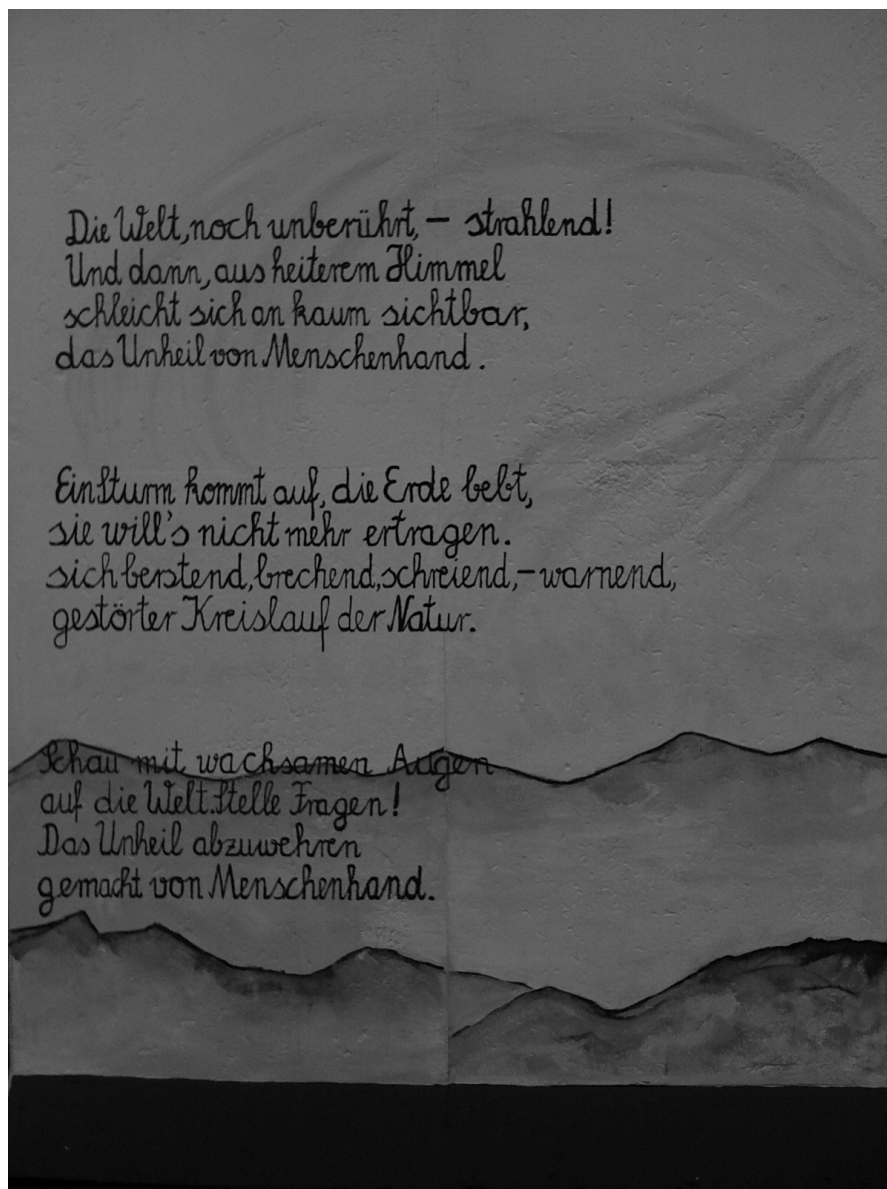 Die Welt, noch unberührt, – strahlend!
Und dann, aus heiterem Himmel
schleicht sich an kaum sichtbar,
das Unheil von Menschenhand.
Ein Sturm kommt auf, die Erde bebt,
sie will's nicht mehr ertragen.
sich berstend, brechend, schreiend, – warnend,
gestörter Kreislauf der Natur.
Schau mit wachsamen Augen
auf die Welt. Stelle Fragen!
Das Unheil abzuwehren
gemacht von Menschenhand.